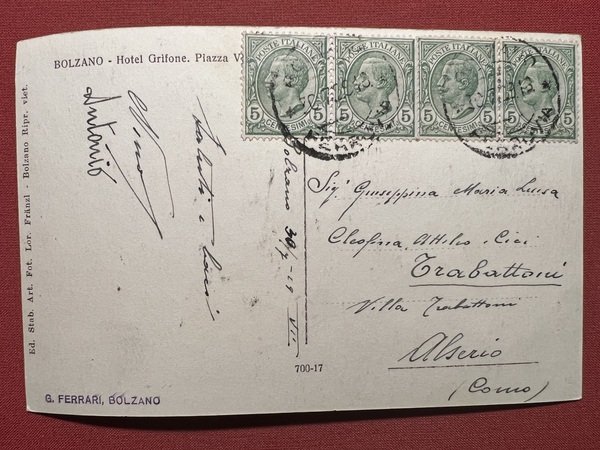 BOLZANO - Hotel Grifone. Piazza V
POSTE ITALIANE POSTE ITALIANE POSTE ITALIANE POSTE ITALIANE
5 5 5 5 5 5 5 5
CENTESIMI CENTESIMI CENTESIMI CENTESIMI
Nino
Antonio
Saluti e baci
Bolzano 30/7-29 VII
Sig. Giuseppina Maria Luisa
Cleofina, Attilio, Cici
Trabattoni
Villa Trabattoni
Alserio
(Como)
700-17
Ed. Stab. Art. Fot. Lor. Fränzl - Bolzano Ripr. viet.
G. FERRARI, BOLZANO